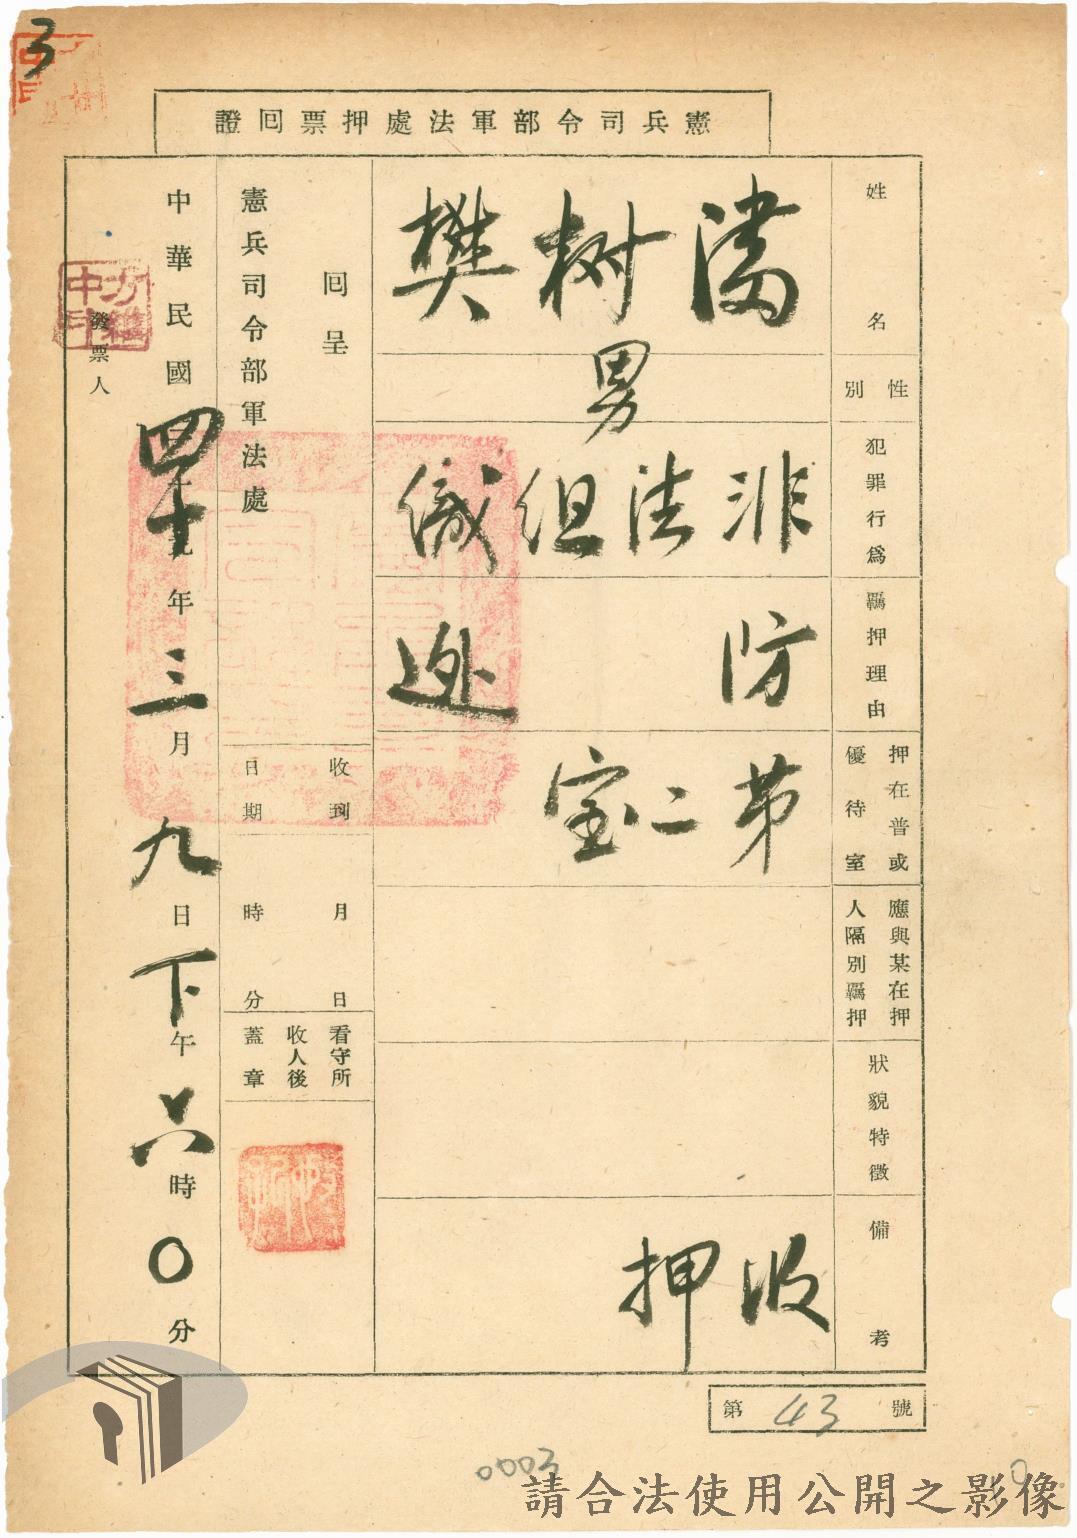 3
憲兵司令部軍法處押票回證
姓名
潘树樊
性別
男
犯罪行為
非法組織
羈押理由
防迯
押在普或優待室
第二室
應與某在押人隔別羈押
狀貌特徵
備考
收押
回呈
憲兵司令部軍法處
收到日期
月日時分
看守所收人後蓋章
中華民國四十年三月九日下午六時〇分
發票人
第43號
0003
請合法使用公開之影像